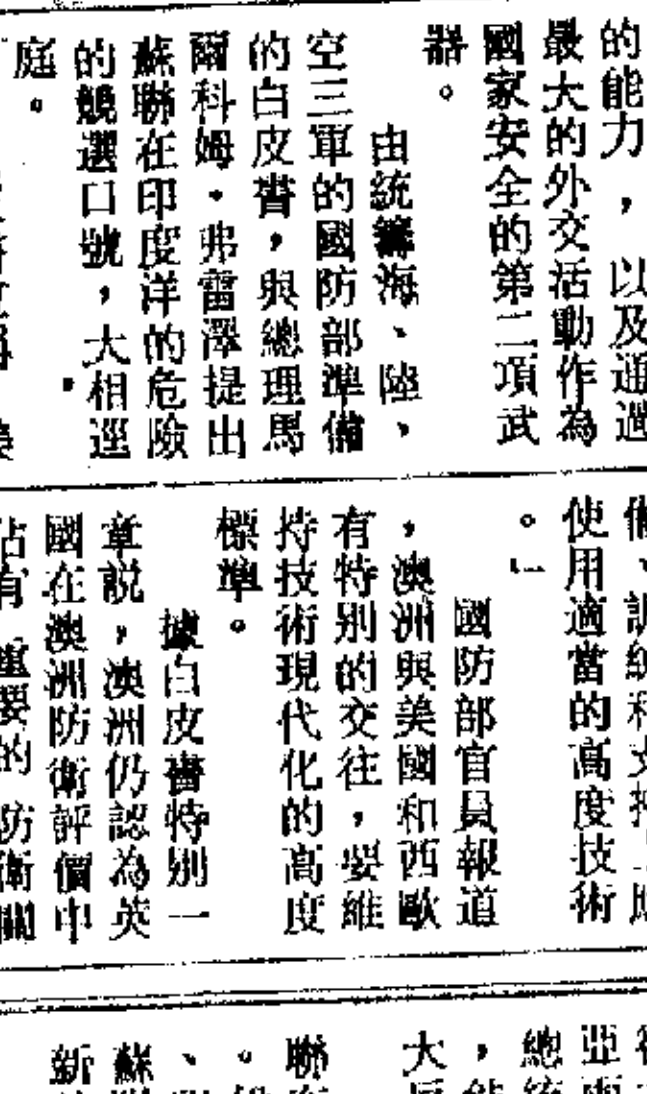 的能力，以及通過
最大的外交活動作為
國家安全的第二項武
器。
由統籌海、陸、
空三軍的國防部準備
的白皮書，與總理馬
爾科姆·弗雷澤提出
蘇聯在印度洋的危險
的競選口號，大相逕
庭。
使用適當的高度技術
。」
國防部官員報道
，澳洲與美國和西歐
有特別的交往，要維
持技術現代化的高度
標準。
據白皮書特別一
章説，澳洲仍認為英
國在澳洲防衛評價中
佔有重要的防衛關
總統
大
聯
蘇
新